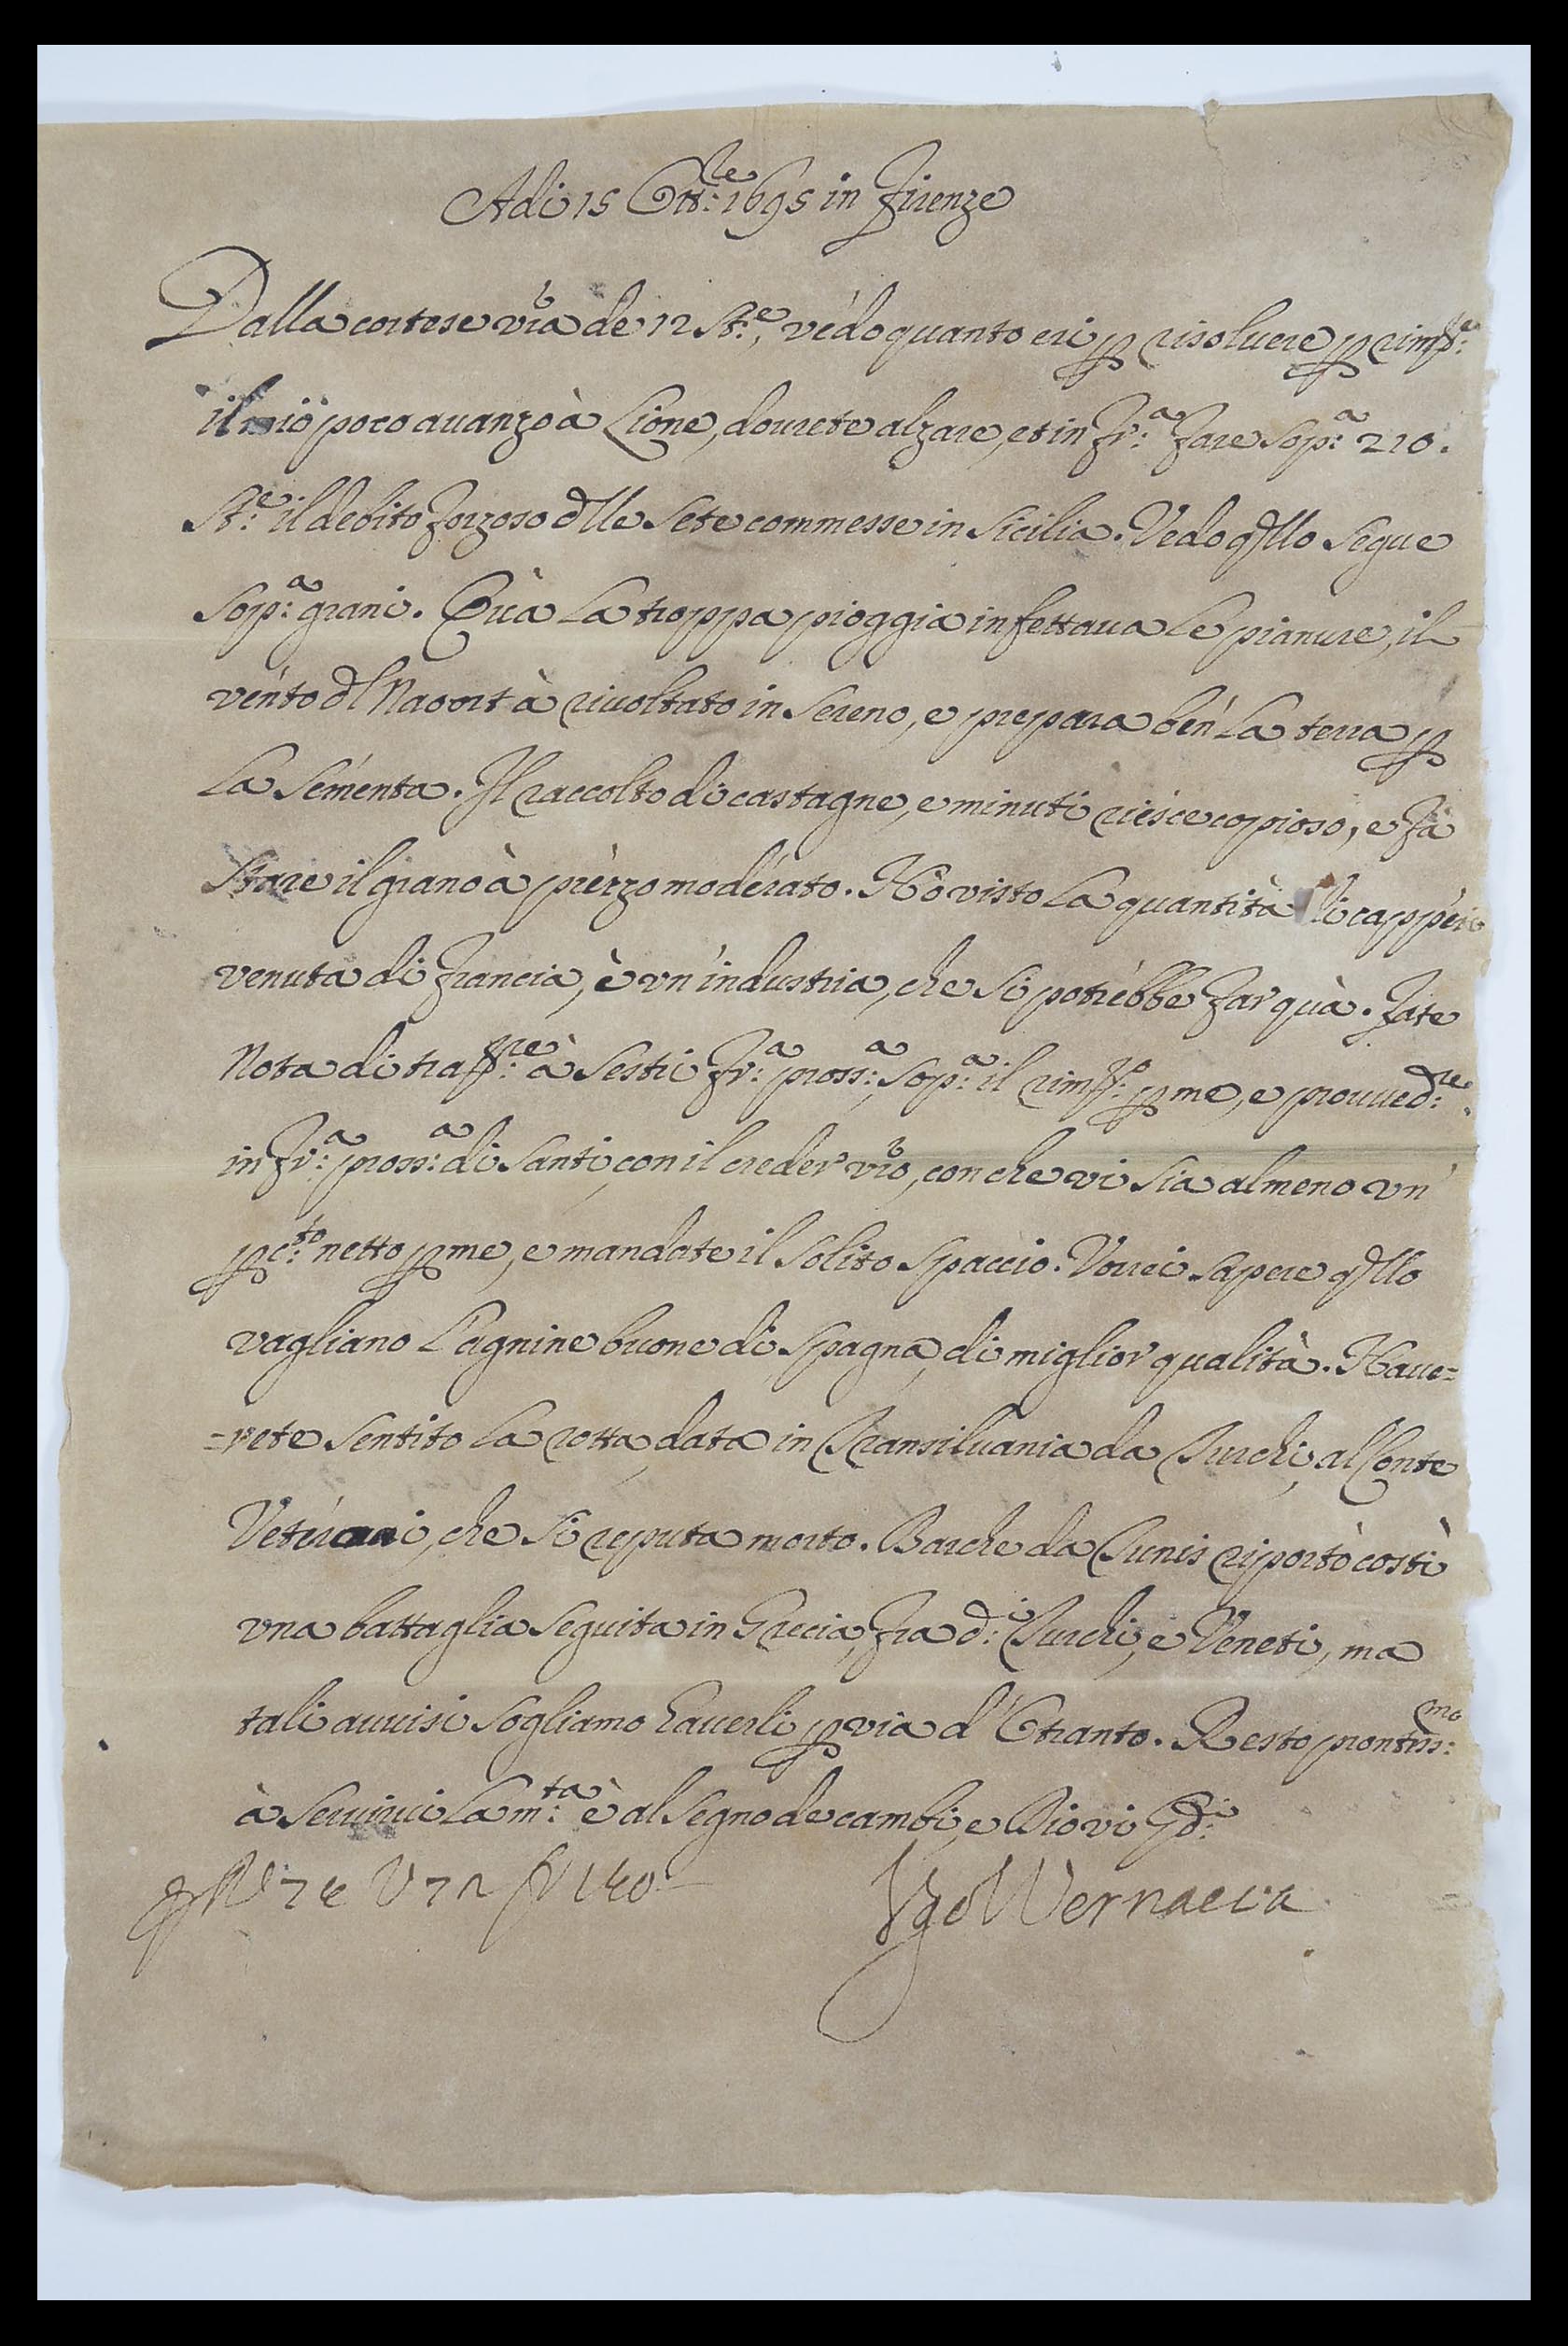 Adi 15 Ott:re 1695 in Firenze
Dalla cortese vr̃a de 12 St:e, védo quanto eri p risoluere p rim:re
il mio poco auanzo à Lione, dourete alzare, et in fr:a fare sop:a 210.
St:e il debito forzoso dlle Sete commesse in Sicilia. Vedo qllo segue
sop:a grani. Quà la troppa pioggia infettaua le pianure, il
vénto dl Naort à riuoltato in sereno, e prepara bén la terra p
la Seménta. Il raccolto di castagne, e minuti riésce copioso, e fà
stare il grano à prézzo modérato. Hò visto la quantità di cappéri
venuta di francia, è un'industria, che si potrébbe far quà. fate
Nota di tra:re à Sestri fr:a pross:a, sop:a il rim:o p me, e prouued:re
in fr:a pross:a di Santi, con il creder vr̃o, con che vi sia almeno un'
p c:to netto p me, e mandate il solito spaccio. Vorrei sapere qllo
vagliano l'agnine buone di Spagna, di miglior qualità. Haue=
=rete sentito la rotta, data in Transiluania da Turchi, al Conte
Veterani, che si reputa morto. Barche da Tunis riportò costì
una battaglia seguita in Grecia, fra d:i Turchi, e Veneti, ma
tali auuisi sogliamo hauerli p via d'Otranto. Resto prontiss:mo
à seruirui la m:ta è al segno de cambi, e Dio vi Gd:i
Vgo Wernaeca